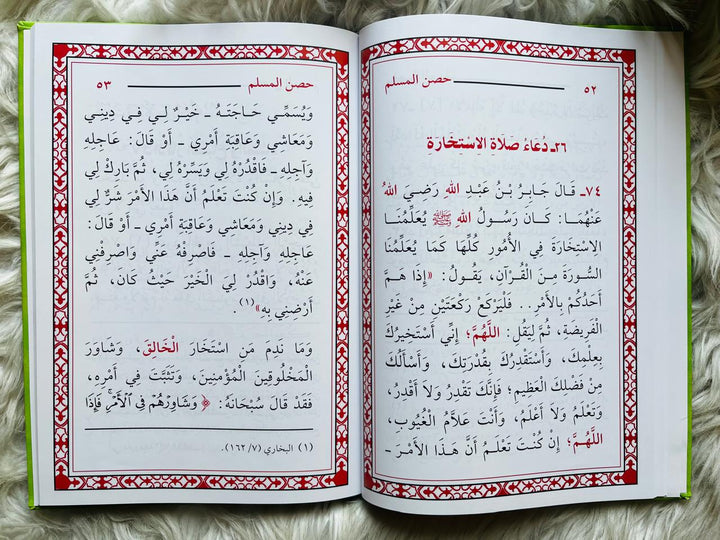 ٥٢ حصن المسلم
٢٦ـ دُعَاءُ صَلَاةِ الِاسْتِخَارَةِ
٧٤ـ قَالَ جَابِرُ بْنُ عَبْدِ اللهِ رَضِيَ اللهُ
عَنْهُمَا: كَانَ رَسُولُ اللهِ ﷺ يُعَلِّمُنَا
الِاسْتِخَارَةَ فِي الأُمُورِ كُلِّهَا كَمَا يُعَلِّمُنَا
السُّورَةَ مِنَ الْقُرْآنِ، يَقُولُ: «إِذَا هَمَّ
أَحَدُكُمْ بِالأَمْرِ.. فَلْيَرْكَعْ رَكْعَتَيْنِ مِنْ غَيْرِ
الْفَرِيضَةِ، ثُمَّ لِيَقُلِ: اللَّهُمَّ؛ إِنِّي أَسْتَخِيرُكَ
بِعِلْمِكَ، وَأَسْتَقْدِرُكَ بِقُدْرَتِكَ، وَأَسْأَلُكَ
مِنْ فَضْلِكَ الْعَظِيمِ؛ فَإِنَّكَ تَقْدِرُ وَلَا أَقْدِرُ،
وَتَعْلَمُ وَلَا أَعْلَمُ، وَأَنْتَ عَلَّامُ الْغُيُوبِ،
اللَّهُمَّ؛ إِنْ كُنْتَ تَعْلَمُ أَنَّ هَذَا الأَمْرَ ـ
حصن المسلم ٥٣
وَيُسَمِّي حَاجَتَهُ ـ خَيْرٌ لِي فِي دِينِي
وَمَعَاشِي وَعَاقِبَةِ أَمْرِي ـ أَوْ قَالَ: عَاجِلِهِ
وَآجِلِهِ ـ فَاقْدُرْهُ لِي وَيَسِّرْهُ لِي، ثُمَّ بَارِكْ لِي
فِيهِ. وَإِنْ كُنْتَ تَعْلَمُ أَنَّ هَذَا الأَمْرَ شَرٌّ لِي
فِي دِينِي وَمَعَاشِي وَعَاقِبَةِ أَمْرِي ـ أَوْ قَالَ:
عَاجِلِهِ وَآجِلِهِ ـ فَاصْرِفْهُ عَنِّي وَاصْرِفْنِي
عَنْهُ، وَاقْدُرْ لِيَ الْخَيْرَ حَيْثُ كَانَ، ثُمَّ
أَرْضِنِي بِهِ»(١).
وَمَا نَدِمَ مَنِ اسْتَخَارَ الْخَالِقَ، وَشَاوَرَ
الْمَخْلُوقِينَ الْمُؤْمِنِينَ، وَتَثَبَّتَ فِي أَمْرِهِ،
فَقَدْ قَالَ سُبْحَانَهُ: ﴿وَشَاوِرْهُمْ فِي الْأَمْرِ فَإِذَا
(١) البخاري (٧/ ١٦٢).